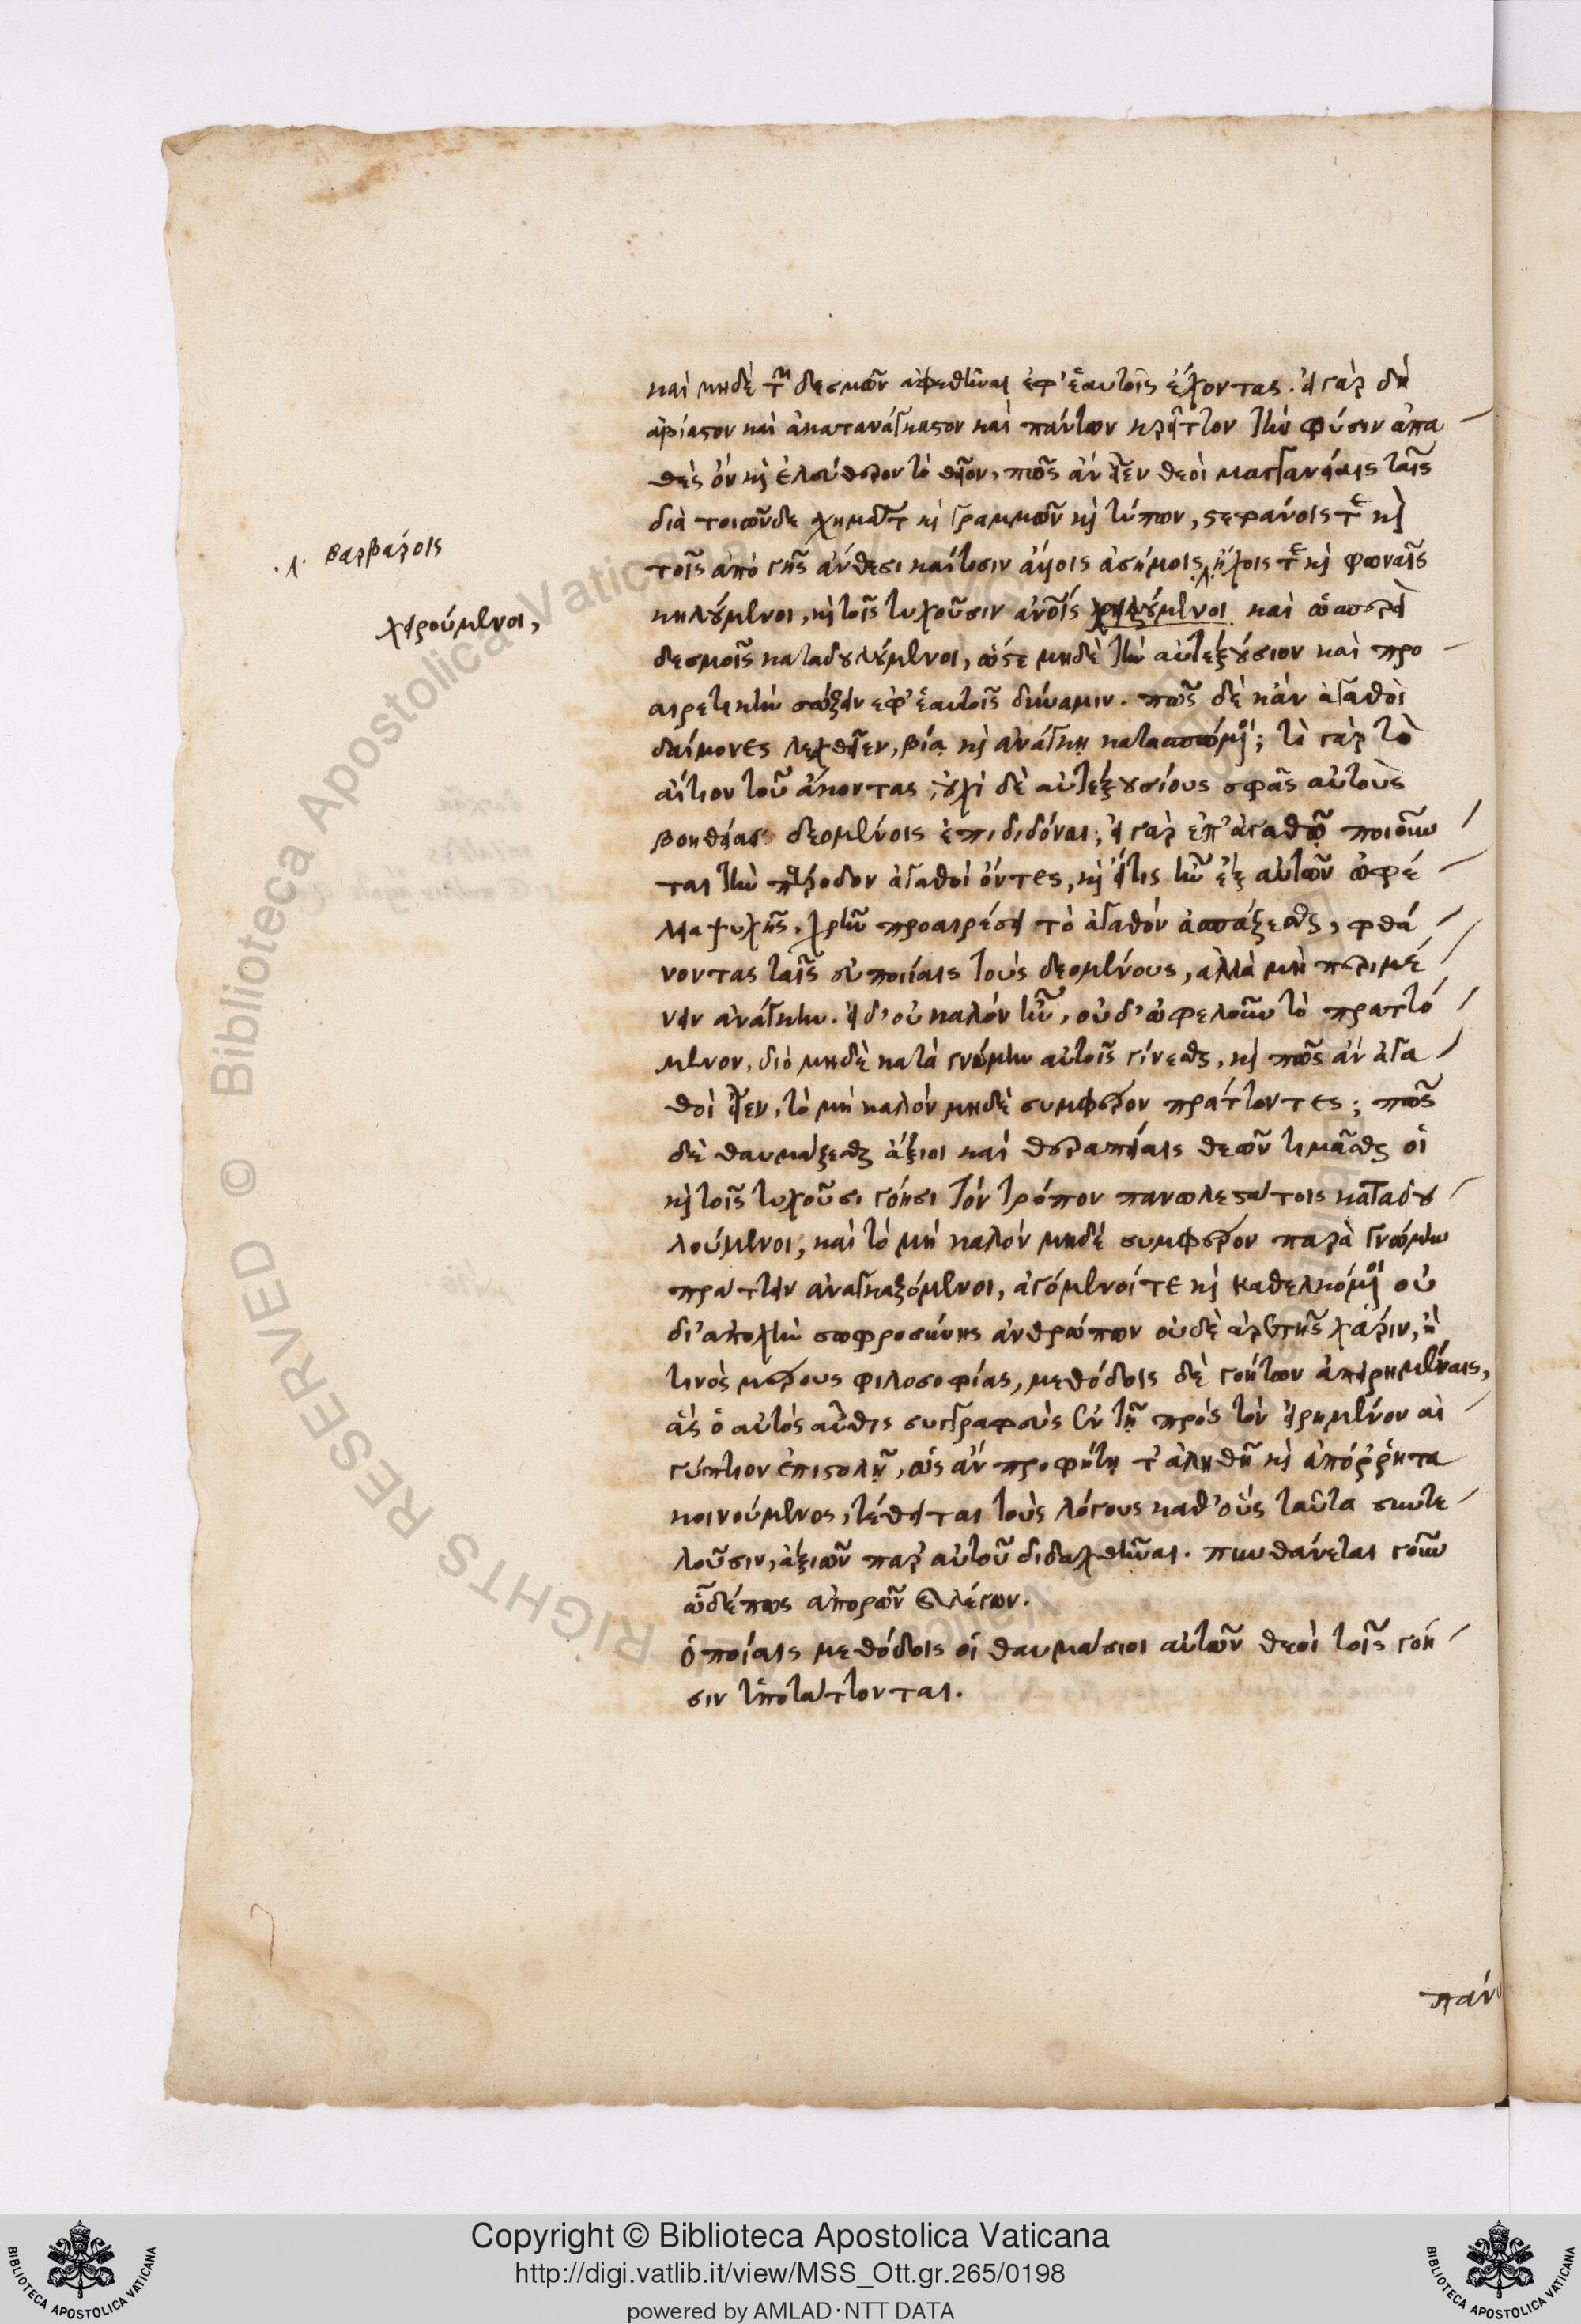 καὶ μηδὲ τῶν δεσμῶν ἀφεθῆναι ἐφ' ἑαυτοῖς ἔχοντας. εἰ γὰρ δὴ
ἀβίαστον καὶ ἀκατανάγκαστον καὶ πάντων κρεῖττον τὴν φύσιν ἀπα
θὲς ὂν καὶ ἐλεύθερον τὸ θεῖον, πῶς ἂν εἶεν θεοὶ μαγγανείαις ταῖς
διὰ τοιῶνδε χημάτων καὶ γραμμῶν καὶ τύπων, στεφάνοις τε καὶ
τοῖς ἀπὸ γῆς ἄνθεσι καίτισιν ἀσήμοις ἤχοις τε καὶ φωναῖς
.λ. βαρβάροις
κηλούμενοι, καὶ τοῖς τυχοῦσιν ἀνοῖς χειρούμενοι καὶ ὡσπερεὶ
χειρούμενοι,
δεσμοῖς καταδουλούμενοι, ὥστε μηδὲ τὴν αὐτεξούσιον καὶ προ
αιρετικὴν σώζειν ἐφ' ἑαυτοῖς δύναμιν. πῶς δὲ κἂν ἀγαθοὶ
δαίμονες λεχθεῖεν, βίᾳ καὶ ἀνάγκῃ κατασπώμενοι; τί γὰρ τὸ
αἴτιον τοῦ ἄκοντας, οὐχὶ δὲ αὐτεξουσίους σφᾶς αὐτοὺς
βοηθείας δεομένοις ἐπιδιδόναι; εἰ γὰρ ἐπ' ἀγαθῷ ποιοῦν
ται τὴν πάροδον ἀγαθοὶ ὄντες, καὶ εἴ τις ἦν ἐξ αὐτῶν ὠφέ
λεια ψυχῆς, χρῆν προαιρέσει τὸ ἀγαθὸν ἀσπάζεσθαι, φθά
νοντας ταῖς εὐποιίαις τοὺς δεομένους, ἀλλὰ μὴ περιμέ
νειν ἀνάγκην. εἰ δ' οὐ καλὸν ἦν, οὐδ' ὠφελοῦν τὸ πραττό
μενον, διὸ μηδὲ κατὰ γνώμην αὐτοῖς γίνεσθαι, καὶ πῶς ἂν ἀγα
θοὶ εἶεν, τὸ μὴ καλὸν μηδὲ συμφέρον πράττοντες; πῶς
δὲ θαυμάζεσθαι ἄξιοι καὶ θεραπείαις θεῶν τιμᾶσθαι οἱ
καὶ τοῖς τυχοῦσι γόησι τὸν τρόπον πανωλεστάτοις καταδου
λούμενοι, καὶ τὸ μὴ καλὸν μηδὲ συμφέρον παρὰ γνώμην
πράττειν ἀναγκαζόμενοι, ἀγόμενοί τε καὶ καθελκόμενοι οὐ
δι' ἀποχὴν σωφροσύνης ἀνθρώπων οὐδὲ ἀρετῆς χάριν, ἤ
τινος μέρους φιλοσοφίας, μεθόδοις δὲ γοήτων ἀπειρημέναις,
ἃς ὁ αὐτὸς αὖθις συγγραφεὺς ἐν τῇ πρὸς τὸν εἰρημένον αἰ
γύπτιον ἐπιστολῇ, ὡς ἂν προφήτῃ τἀληθῆ καὶ ἀπόρρητα
κοινούμενος, τέθειται τοὺς λόγους καθ' οὓς ταῦτα συντε
λοῦσιν, ἀξιῶν παρ' αὐτοῦ διδαχθῆναι. πυνθάνεται γοῦν
ὧδέ πως ἀπορῶν καὶ λέγων.
ὁποίαις μεθόδοις οἱ θαυμάσιοι αὐτῶν θεοὶ τοῖς γόη
σιν ὑποτάττονται.
πάνυ
Copyright © Biblioteca Apostolica Vaticana
http://digi.vatlib.it/view/MSS_Ott.gr.265/0198
powered by AMLAD·NTT DATA